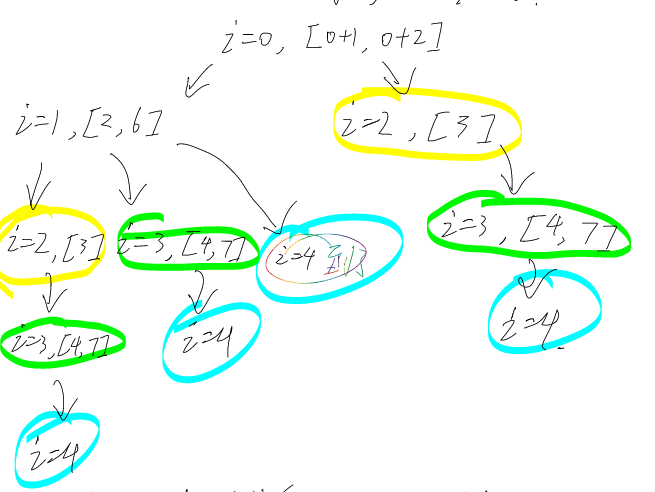 i=0, [0+1, 0+2]
i=1, [2, 6]
i=2, [3]
i=2, [3]
i=3, [4, 7]
i=4 到了
i=3, [4, 7]
i=3, [4, 7]
i=4
i=4
i=4